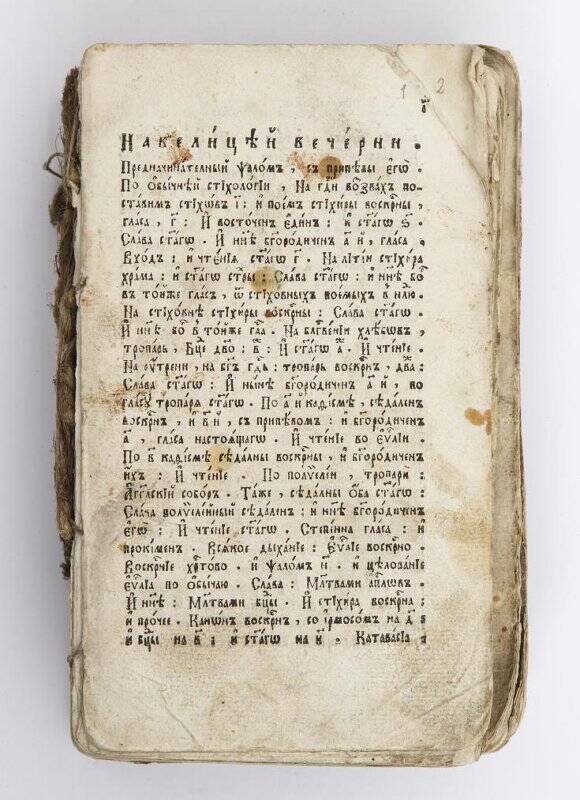 1 2
На вели́цѣй вече́рни .
Предначинателный ѱало́мъ , съ припѣвы є҆гѡ̀
По ѻ҆бы́чнѣй стїхологі́и , На гд҇и воззва́хъ по-
ставимъ стїхѡ́въ і҃ : и҆ пое́мъ стїхи́ры воскр҇ны ,
гла́са , г҃ : И҆ восто́ченъ є҆ди́нъ : и҆ ст҃а́гѡ ѕ҃ .
Сла́ва ст҃а́гѡ . И҆ ны́нѣ бг҃оро́диченъ а҃ й , гла́са .
Вхо́дъ : и҆ чте́нїѧ ст҃а́гѡ г҃ . На літі́и стїхи́ра
хра́ма : и҆ ст҃а́гѡ : Сла́ва ст҃а́гѡ : и҆ ны́нѣ бо҇
въ то́йже гла́съ , ѿ стїхо́вныхъ пое́мыхъ в н҃лю .
На стїхо́внѣ стїхи́ры воскр҇ны : Сла́ва ст҃а́гѡ .
И҆ ны́нѣ бо҇ в то́йже гла҇ . На блг҇ве́нїи хлѣ́бѡвъ ,
тропа́рь , Бц҃е дв҃о : в҃ : И҆ ст҃а́гѡ а҃ . И҆ чте́нїе .
На ᲂу҆́трени , на бг҃ъ гд҇ь : тропа́рь воскр҇нъ , два́ :
Сла́ва ст҃а́гѡ : И҆ ны́нѣ бг҃оро́диченъ а҃ й , во
гла́съ тропарѧ̀ ст҃а́гѡ . По а҃ й каѳі́смѣ , сѣда́ленъ
воскр҇нъ , и҆ в҃ й , съ припѣ́вомъ : и҆ бг҃оро́диченъ
а҃ , гла́са настоѧ́щагѡ . И҆ чте́нїе во є҆ѵ҃лїи .
По в҃ каѳі́смѣ сѣда́лны воскр҇ны , и҆ бг҃оро́диченъ
и҆́хъ : И҆ чте́нїе . По полѷеле́и , тропарѝ :
А҆́гг҃лскїй собо́ръ . Та́же , сѣда́лны ѻ҆́ба ст҃а́гѡ :
Сла́ва полѷеле́йный сѣда́ленъ : и҆ ны́нѣ бг҃оро́диченъ
є҆гѡ̀ : И҆ чте́нїе ст҃а́гѡ . Степе́нна гла́са : и҆
прокі́менъ . Всѧ́кое дыха́нїе : Є҆ѵ҃лїе воскр҇но .
Воскр҇нїе хр҇то́во . и҆ ѱало́мъ н҃ . и҆ цѣлова́нїе
є҆ѵ҃лїа по ѻ҆бы́чаю . Сла́ва : Мл҃твами а҆п҇лѡвъ .
И҆ ны́нѣ : Мл҃твами бц҃ы . И҆ стїхи́ра воскр҇на :
и҆ про́чее . Кано́нъ воскр҇нъ , со і҆рмосо́мъ на д҃ :
и҆ бц҃ы на в҃ : и҆ ст҃а́гѡ на и҃ . Катава́сїа :